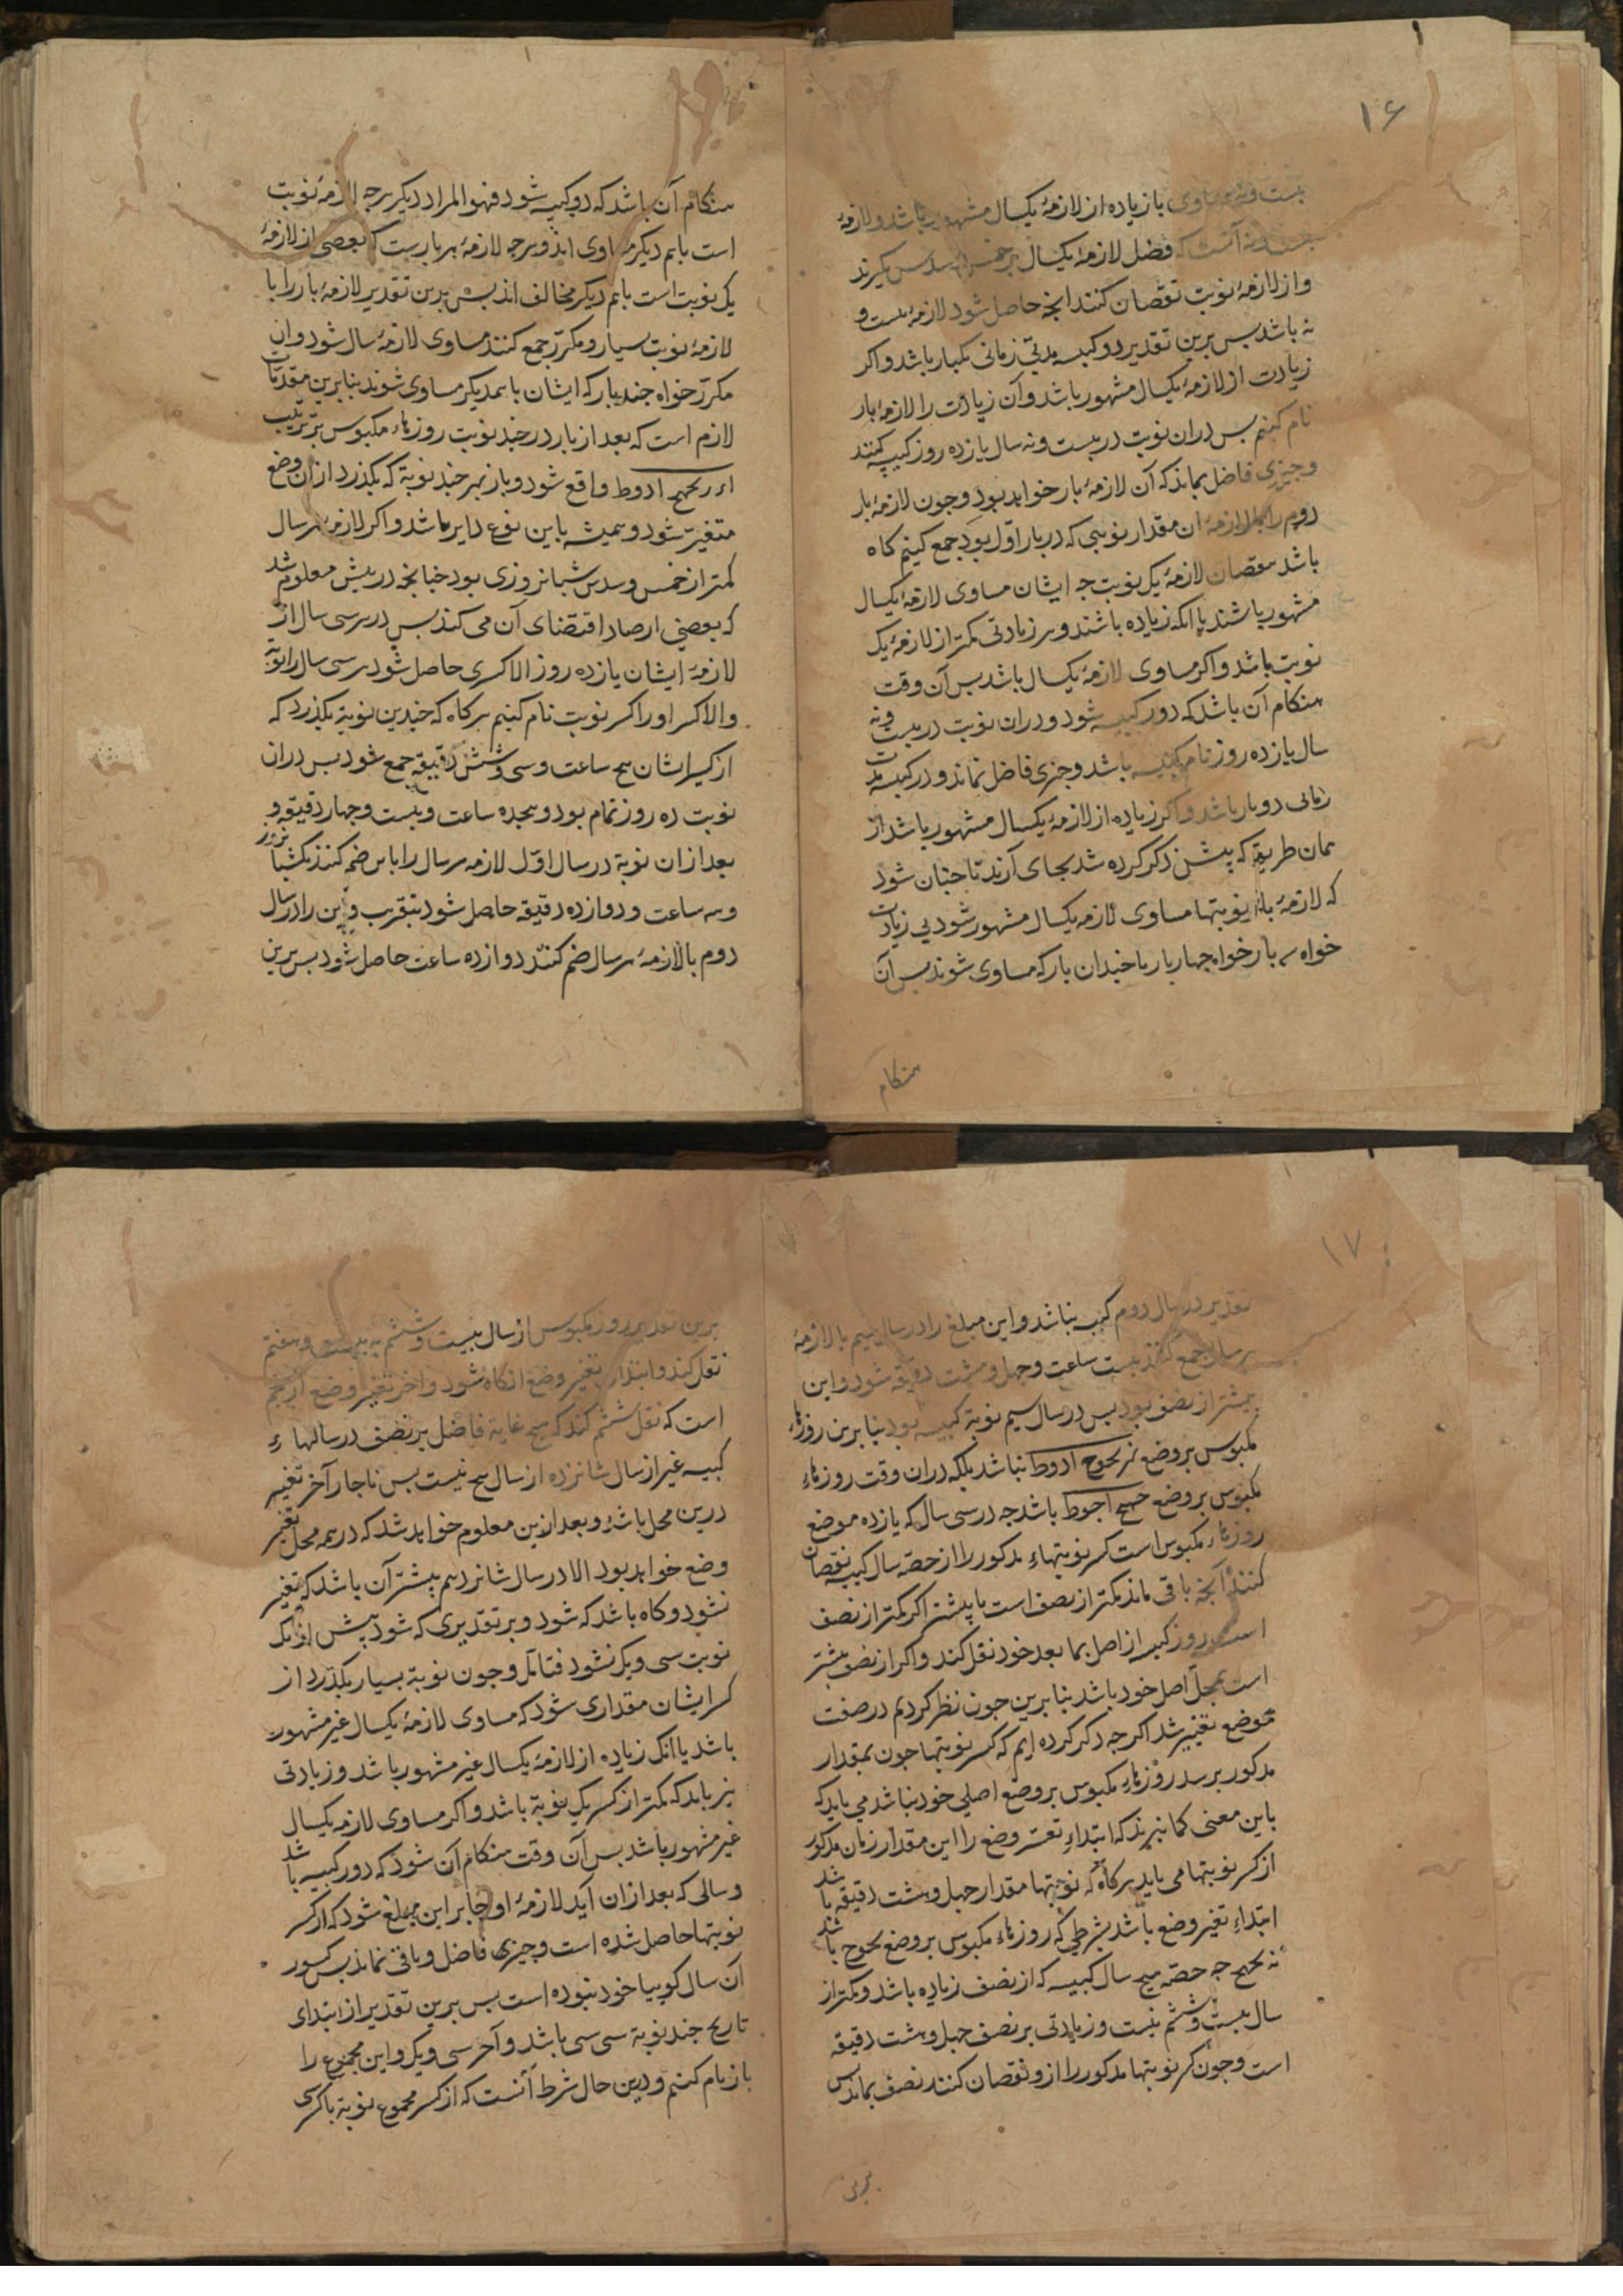 ۱۶
بیست ونه مساوی یا زیاده از لازمهٔ یکسال مشهور باشد ولازمهٔ
آنست که فضل لازمهٔ یکسال بر خمس و سدس گیرند
واز لازمهٔ نوبت نقصان کنند انچه حاصل شود لازمهٔ بیست و
نه باشد بس برین تقدیر دو کبیسه مدتی زمانی یکبار باشد واکر
زیادت از لازمهٔ یکسال مشهور باشد وآن زیادت را لازمهٔ بار
نام کنیم بس دران نوبت در بیست ونه سال یازده روز کبیسه کنند
وچیزی فاضل بماند که آن لازمهٔ بار خواهد بود وچون لازمهٔ بار
دوم را با لازمهٔ ان مقدار نوبتی که در بار اوّل بود جمع کنیم کاه
باشد بنقصان لازمهٔ یک نوبت چه ایشان مساوی لازمهٔ یکسال
مشهور باشند یا انکه زیاده باشند وبر زیادتی کمتر از لازمهٔ یک
نوبت باشد واکر مساوی لازمهٔ یکسال باشد بس آن وقت
هنکام آن باشد که دور کبیسه شود ودران نوبت در بیست ونه
سال یازده روز تام کبیسه باشد وچیزی فاضل نماند ودر کبیسه مدت
زمانی دو بار باشد واکر زیاده از لازمهٔ یکسال مشهور باشد از
همان طریق که پیش ذکر کرده شد بجای آرند تا چنان شود
که لازمهٔ بار نوبتها مساوی لازمه یکسال مشهور شود بی زیادت
خواه سه بار خواه چهار بار یا چندان بار که مساوی شوند بس آن
هنکام
هنکام آن باشد که دو کبیسه شود فهو المراد دیکر هرچه لازمهٔ نوبت
است باهم دیکر مساوی اند وهرچه لازمهٔ هر بارست که بعضی از لازمهٔ
یک نوبت است باهم دیکر مخالف اند بس برین تقدیر لازمهٔ بار را با
لازمهٔ نوبت بسیار ومکرّر جمع کنند مساوی لازمهٔ سال شود وان
مکرّر خواه چند بار که ایشان باهمدیکر مساوی شوند بنابرین مقدمات
لازم است که بعد از بار در چند نوبت روزهاء مکبوس بر ترتیب
ادوط واقع شود وباز بهر چند نوبة که بکذرد ازان وضع
متغیّر شود وهمیشه باین نوع دایر باشد واکر لازمهٔ هر سال
کمتر از خمس وسدس شبانروزی بود چنانچه در پیش معلوم شد
که بعضی ارصاد اقتضای آن می کند بس در هر سی سال از
لازمهٔ ایشان یازده روز الا کسری حاصل شود هر سی سال را نوبة
والا کسر او را کسر نوبت نام کنیم هرکاه که چندین نوبة بکذرد که
از کسر ایشان پنج ساعت وسی وشش دقیقه جمع شود بس دران
نوبت ده روز تمام بود وهجده ساعت وبیست وچهار دقیقه و
بعد ازان نوبة در سال اوّل لازمه هر سال را با این ضم کنند یکشبانروز
وسه ساعت ودوازده دقیقه حاصل شود بتقریب واین را در سال
دوم با لازمهٔ هر سال ضم کنند دوازده ساعت حاصل شود بس برین
۱۷
تقدیر در سال دوم کبیسه نباشد واین مبلغ را در سال سیم با لازمهٔ
هر سال جمع کنند بیست ساعت وچهل وهشت دقیقه شود واین
بیشتر از نصف بود بس در سال سیم نوبة کبیسه بود بنا برین روزهاء
مکبوس بر وضع بهزیجوح ادوط نباشد بلکه دران وقت روزهاء
مکبوس بر وضع اجوط باشد چه در سی سال که یازده موضع
روزهاء مکبوس است کسر نوبتهاء مذکور را از حصّه سال کبیسه نقصان
کنند آنچه باقی ماند کمتر از نصف است یا بیشتر اکر کمتر از نصف
است روز کبیسه از اصل بما بعد خود نقل کند واکر از نصف بیشتر
است بمحل اصل خود باشد بنا برین چون نظر کردیم در صفت
موضع تغییر شد اکرچه ذکر کرده ایم که کسر نوبتها چون بمقدار
مذکور برسد روزهاء مکبوس بر وضع اصلی خود نباشد می باید که
باین معنی کمان نبرند که ابتداء تغییر وضع را این مقدار زمان مذکور
از کسر نوبتها می باید هرکاه که نوبتها مقدار چهل وهشت دقیقه باشد
ابتداء تغیّر وضع باشد بشرطی که روزهاء مکبوس بر وضع بحوح باشد
نه بحهج چه حصّهٔ هیچ سال کبیسه که از نصف زیاده باشد وکمتر از
سال بیست وششم نیست وزیادتی بر نصف چهل وهشت دقیقه
است وچون کسر نوبتها مذکور را ازو نقصان کنند نصف بماند بس
برین
برین تقدیر روز مکبوس از سال بیست وششم به بیست وهفتم
نقل کند وابتداء تغیّر وضع انکاه شود واخر تغیّر وضع
است که نقل ششم کند که هیچ غایة فاضل بر نصف در سالهاء
کبیسه غیر از سال شانزده از سال پنج نیست بس ناچار آخر تغیّر
درین محل باشد وبعد ازین معلوم خواهد شد که در همه محل تغیّر
وضع خواهد بود الا در سال شانزدهم بیشتر آن باشد که تغیّر
نشود وکاه باشد که شود وبر تقدیری که شود بیش از یک
نوبت سی ویک نشود فتامّل وچون نوبة بسیار بکذرد از
کسر ایشان مقداری شود که مساوی لازمهٔ یکسال غیر مشهور
باشد یا انک زیاده از لازمهٔ یکسال غیر مشهور باشد وزیادتی
نیز باید که کمتر از کسر یک نوبة باشد واکر مساوی لازمه یکسال
غیر مشهور باشد بس آن وقت هنکام آن شود که دور کبیسه باشد
وسالی که بعد ازان آید لازمهٔ او جابر این مبلغ شود که از کسر
نوبتها حاصل شده است وچیزی فاضل وباقی نماند بس کسور
آن سال کوییا خود نبوده است بس برین تقدیر از ابتدای
تاریخ چند نوبة سی سی باشد وآخر سی ویک واین مجموع را
بار نام کنیم ودرین حال شرط آنست که از کسر مجموع نوبة با کسری